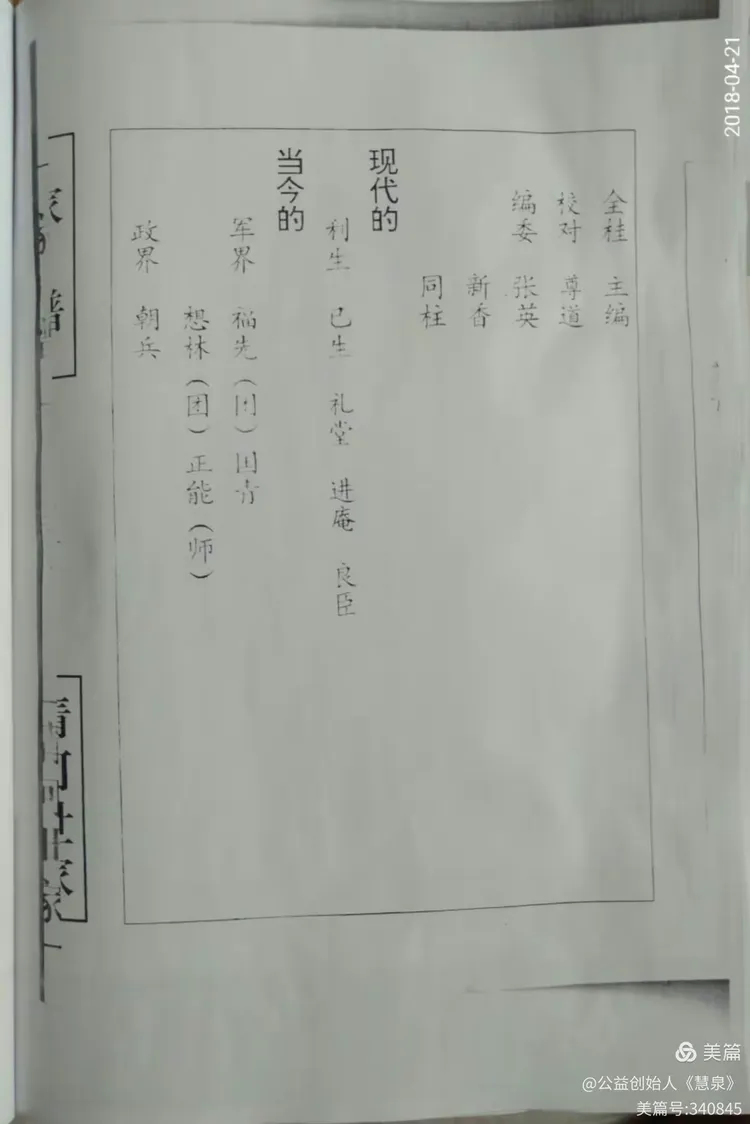 2018-04-21
全桂 主编
校对 尊道
编委 张英
新香
同柱
现代的
利生 已生 礼堂 进庵 良臣
当今的
军界 福先（团）国青
想林（团）正能（师）
政界 朝兵
谱
美篇
@公益创始人《慧泉》
美篇号:340845